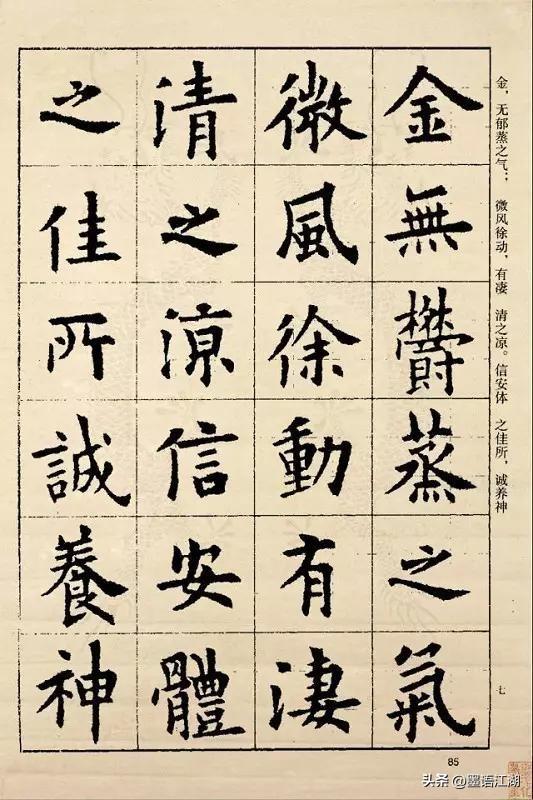 金無鬱蒸之氣
微風徐動有淒
清之涼信安體
之佳所誠養神
金，无郁蒸之气；　微风徐动，有凄　清之凉。信安体　之佳所，诚养神
七
85
头条 @墨语江湖